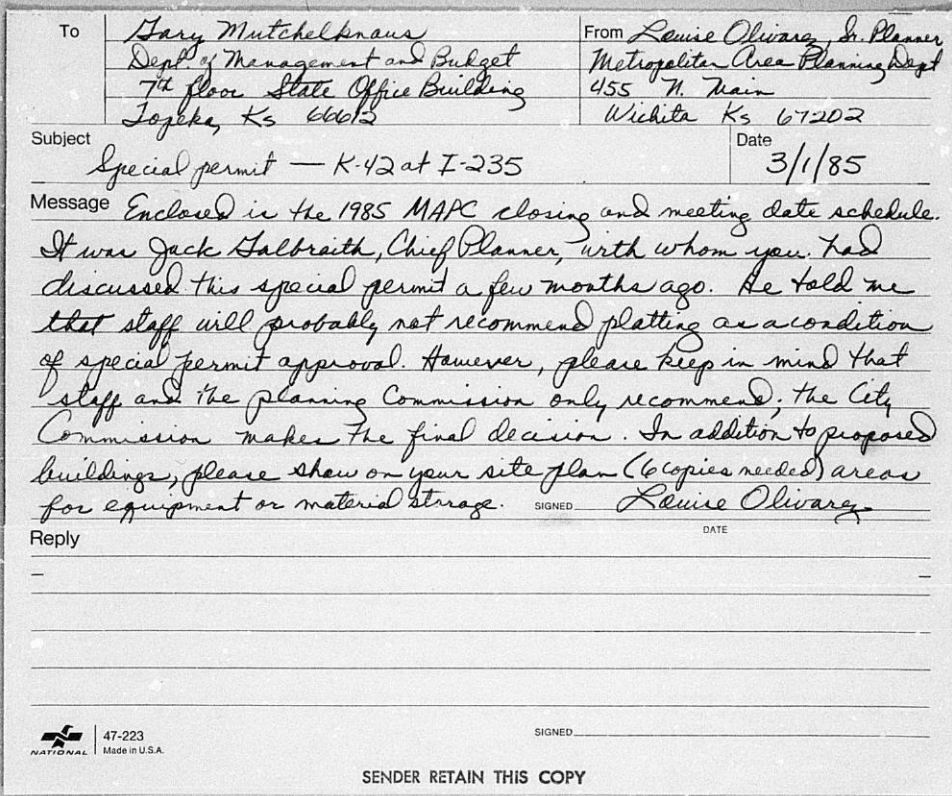 To Gary Mutchelknaus
Dept of Management and Budget
7th floor State Office Building
Topeka, Ks 66612
From Louise Olivarez, Sr. Planner
Metropolitan Area Planning Dept
455 N. Main
Wichita Ks 67202
Subject
Special permit — K-42 at I-235
Date
3/1/85
Message Enclosed is the 1985 MAPC closing and meeting date schedule.
It was Jack Galbraith, Chief Planner, with whom you had
discussed this special permit a few months ago. He told me
that staff will probably not recommend platting as a condition
of special permit approval. However, please keep in mind that
staff and the planning Commission only recommend; the City
Commission makes the final decision. In addition to proposed
buildings, please show on your site plan (6 copies needed) areas
for equipment or material storage. SIGNED Louise Olivarez
DATE
Reply
NATIONAL 47-223
Made in U.S.A.
SIGNED
SENDER RETAIN THIS COPY